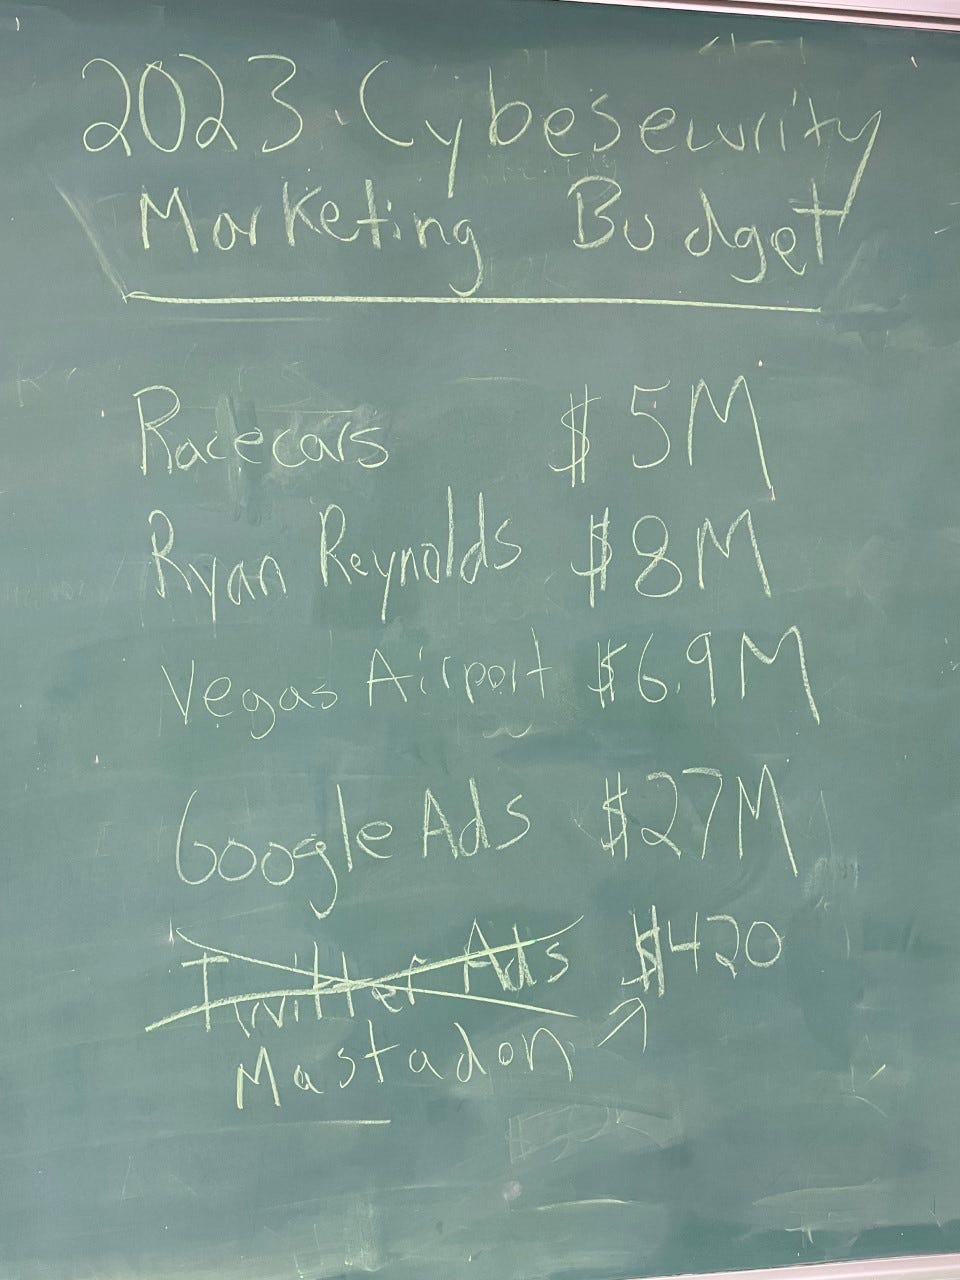 2023 Cybesecurity
Marketing Budget
Racecars $5M
Ryan Reynolds $8M
Vegas Airport $6.9M
Google Ads $27M
Twitter Ads $420
Mastadon